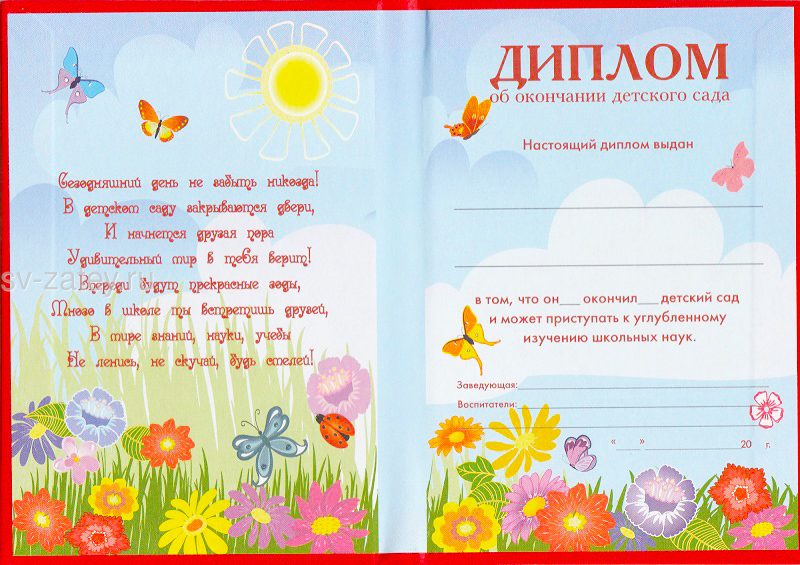 Сегодняшний день не забыть никогда!
В детском саду закрываются двери,
И начнется другая пора
Удивительный мир в тебя верит!
Впереди будут прекрасные годы,
Много в школе ты встретишь друзей,
В мире знаний, науки, учебы
Не ленись, не скучай, будь смелей!
sv-zatey.ru
ДИПЛОМ
об окончании детского сада
Настоящий диплом выдан
в том, что он___ окончил___ детский сад
и может приступать к углубленному
изучению школьных наук.
Заведующая:
Воспитатели:
«___» 20 г.